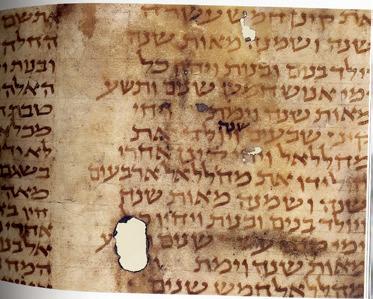 את קינן חמש עשרה
שנה ושמנה מאות שנה
ויולד בנים ובנות ויהיו כל
ימי אנוש חמש שנים ותשע
מאות שנה וימת ויחי
קינן שבעים שנה ויולד את
מהללאל ויחי קינן אחרי
הולידו את מהללאל ארבעים
שנה ושמנה מאות שנה
ויולד בנים ובנות ויהיו
ימי שנים
מאות שנה וימת
מהללאל חמש שנים
את שם
החלה
ובנות
האלה
טבת
מכל
לא
בשגם
מאה
היו
המה